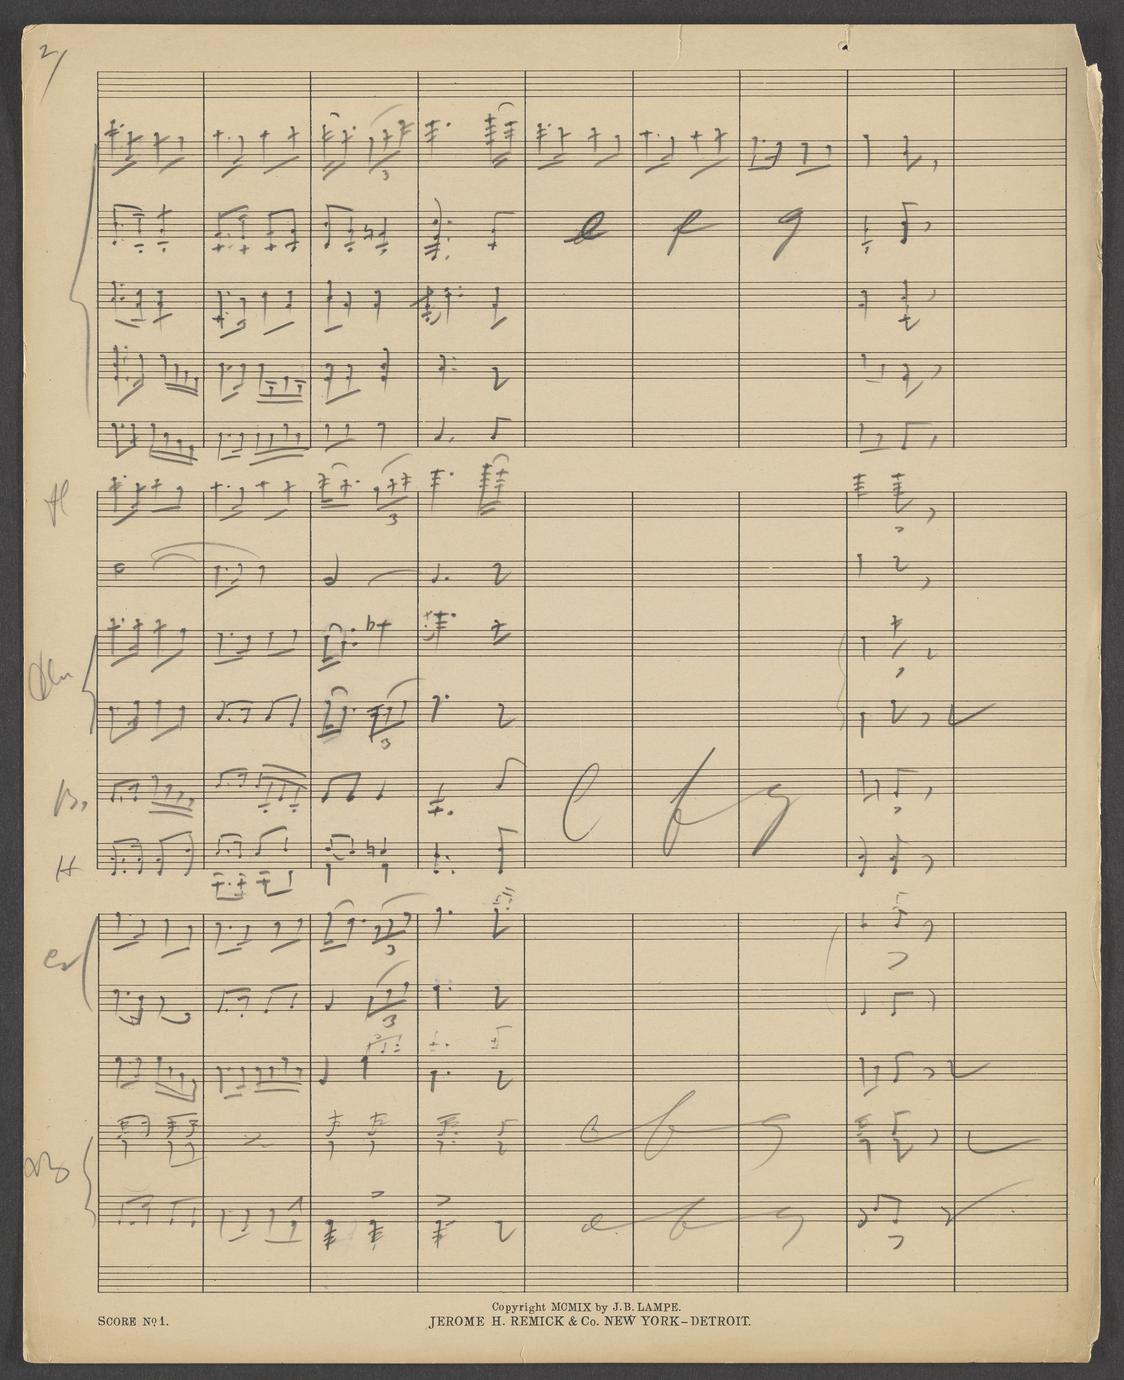 2/
3
e f g
Fl
3
3
B.
e f g
H
3
3
e f g
e f g
Copyright MCMIX by J. B. LAMPE.
SCORE No 1. JEROME H. REMICK & Co. NEW YORK – DETROIT.